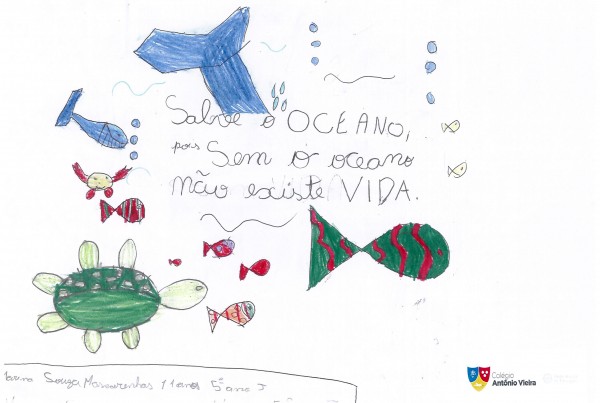 Salve o OCEANO,
pois Sem o oceano
não existe VIDA.
Souza Mascarenhas 11 anos 5º ano J
Colégio
Antônio Vieira